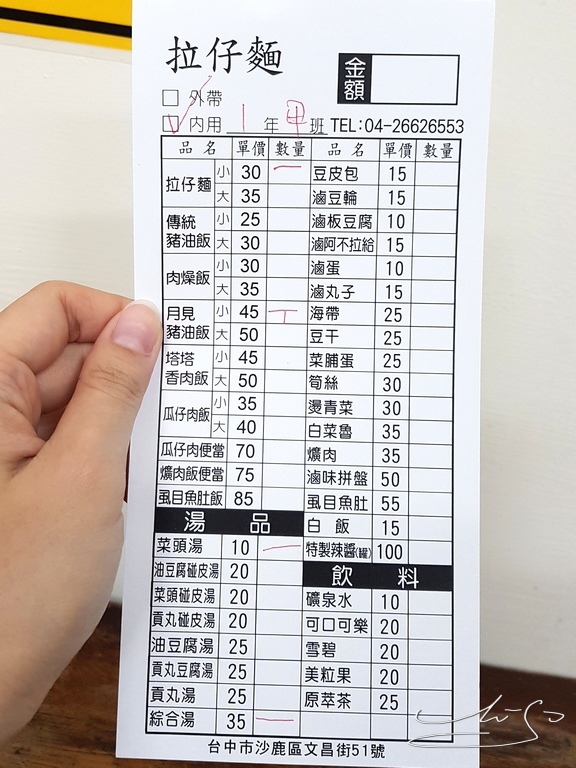 拉仔麵
金額
外帶
✓ 內用 1 年 甲 班 TEL:04-26626553
品名 單價 數量 品名 單價 數量
拉仔麵 小 30 一 豆皮包 15
大 35 滷豆輪 15
傳統豬油飯 小 25 滷板豆腐 10
大 30 滷阿不拉給 15
肉燥飯 小 30 滷蛋 10
大 35 滷丸子 15
月見豬油飯 小 45 丅 海帶 25
大 50 豆干 25
塔塔香肉飯 小 45 菜脯蛋 25
大 50 筍絲 30
瓜仔肉飯 小 35 燙青菜 30
大 40 白菜魯 35
瓜仔肉便當 70 爌肉 35
爌肉飯便當 75 滷味拼盤 50
虱目魚肚飯 85 虱目魚肚 55
湯品 白飯 15
菜頭湯 10 一 特製辣醬(罐) 100
油豆腐碰皮湯 20 飲料
菜頭碰皮湯 20 礦泉水 10
貢丸碰皮湯 20 可口可樂 20
油豆腐湯 25 雪碧 20
貢丸豆腐湯 25 美粒果 20
貢丸湯 25 原萃茶 25
綜合湯 35 一
台中市沙鹿區文昌街51號